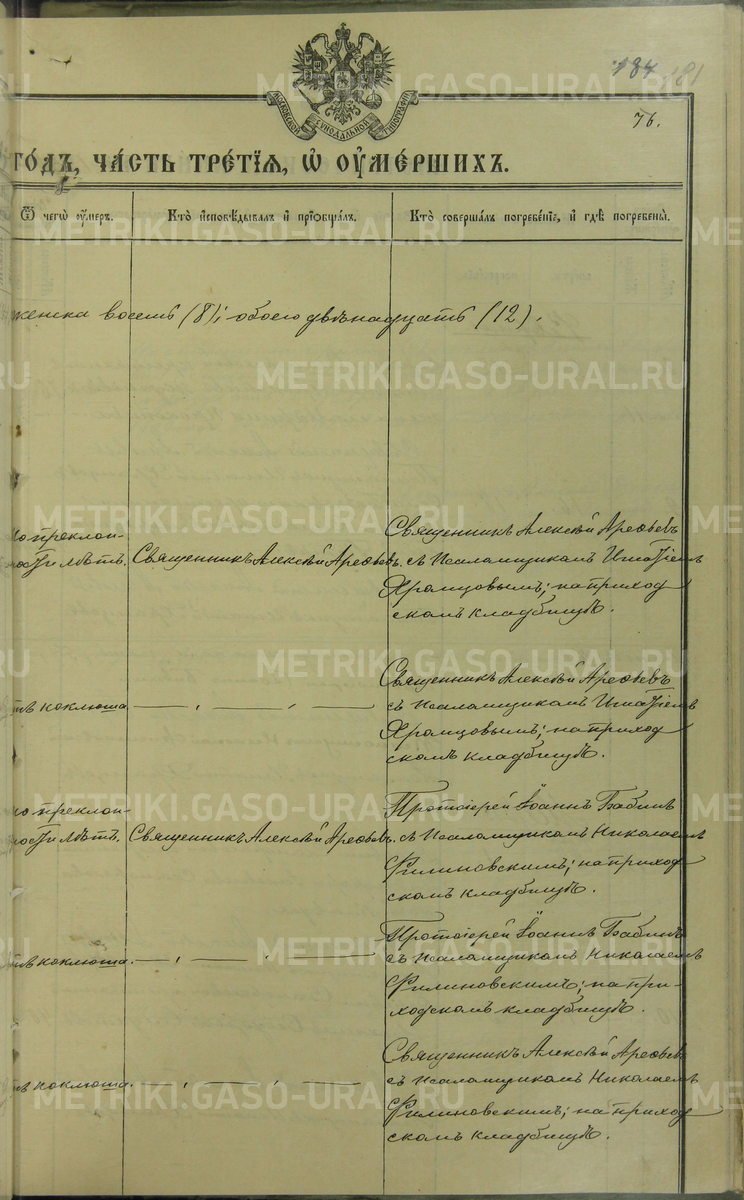 184 181
76.
МОСКОВСКОЙ СѴНОДАЛЬНОЙ ТИПОГРАФІИ
ГО́ДЪ, ЧА́СТЬ ТРЕ́ТІѦ, Ѡ҆ ОУ҆МЕ́РШИХЪ.
Ѿ чегѡ̀ оу҆́меръ.
Кто̀ и҆сповѣ́дывалъ и҆ прїѡбща́лъ.
Кто̀ соверша́лъ погребе́нїе, и҆ гдѣ̀ погребены̀.
женска восемь (8); обоего двѣнадцать (12).
по преклон-
ности лѣтъ.
Священникъ Алексѣй Арефьевъ.
Священникъ Алексѣй Арефьевъ
съ псаломщикомъ Игнатіемъ
Храмцовымъ; на приход
скомъ кладбищѣ.
отъ коклюша.
— , — , — —
Священникъ Алексѣй Арефьевъ
съ псаломщикомъ Игнатіемъ
Храмцовымъ; на приход
скомъ кладбищѣ.
по преклон-
ности лѣтъ.
Священникъ Алексѣй Арефьевъ.
Протоіерей Іоаннъ Бабинъ
съ псаломщикомъ Николаемъ
Филиновскимъ; на приход
скомъ кладбищѣ.
отъ коклюша.
— , — , — —
Протоіерей Іоаннъ Бабинъ
съ псаломщикомъ Николаемъ
Филиновскимъ; на при-
ходскомъ кладбищѣ.
отъ коклюша.
— , — , — —
Священникъ Алексѣй Арефьевъ
съ псаломщикомъ Николаемъ
Филиновскимъ; на приход
скомъ кладбищѣ.
METRIKI.GASO-URAL.RU